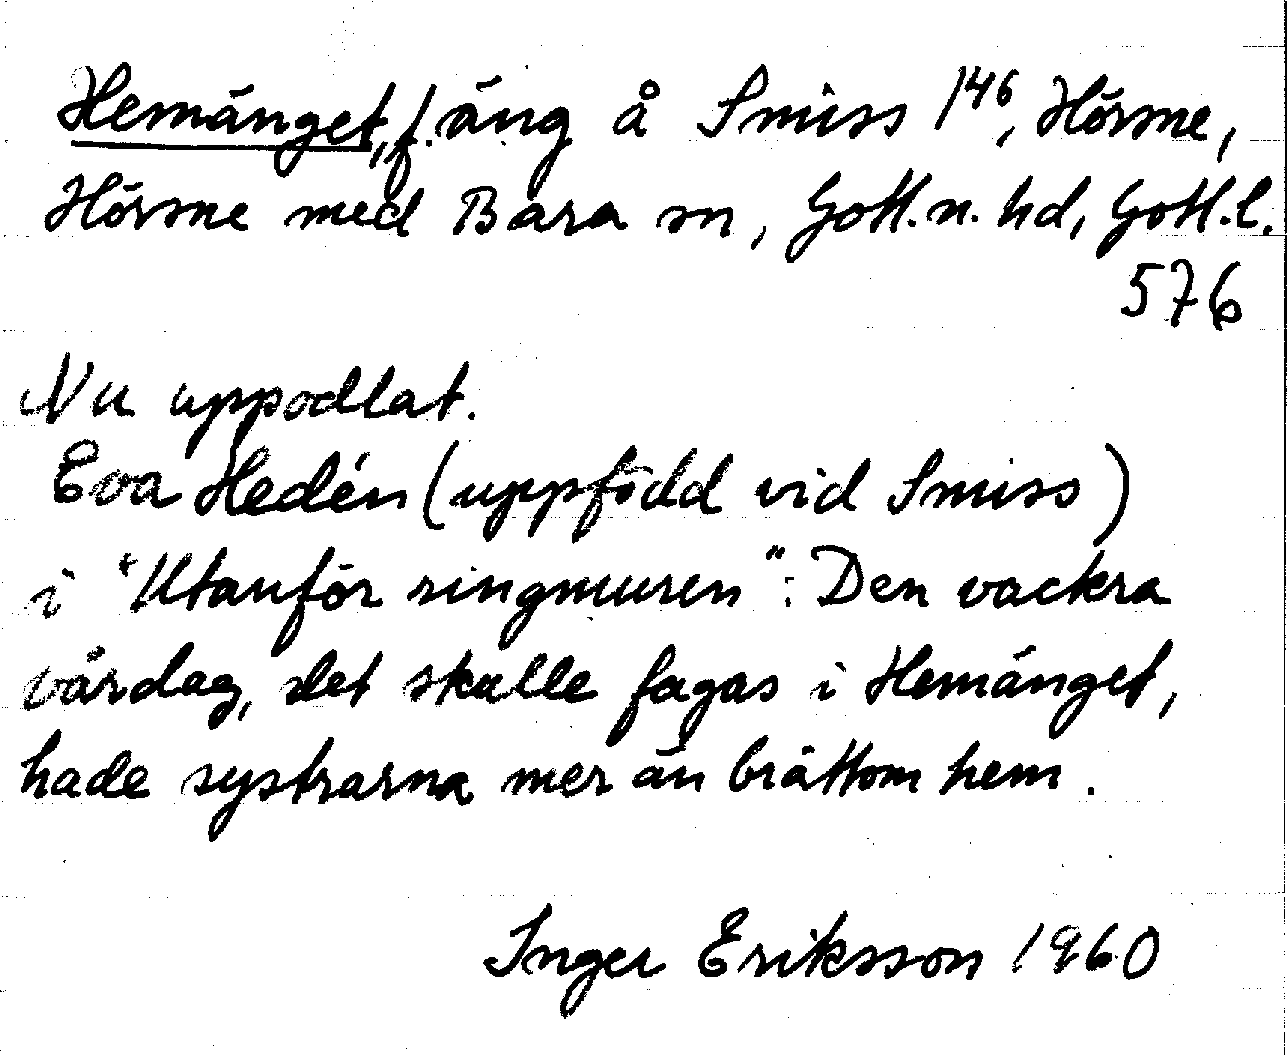 Hemänget, f. äng å Smiss 1⁴⁶, Hörsne,
Hörsne med Bara sn, Gotl. n. hd, Gotl. l.
576
Nu uppodlat.
Eva Hedén (uppfödd vid Smiss)
i "Utanför ringmuren": Den vackra
vårdag, det skulle fagas i Hemänget,
hade systrarna mer än bråttom hem.
Inger Eriksson 1960